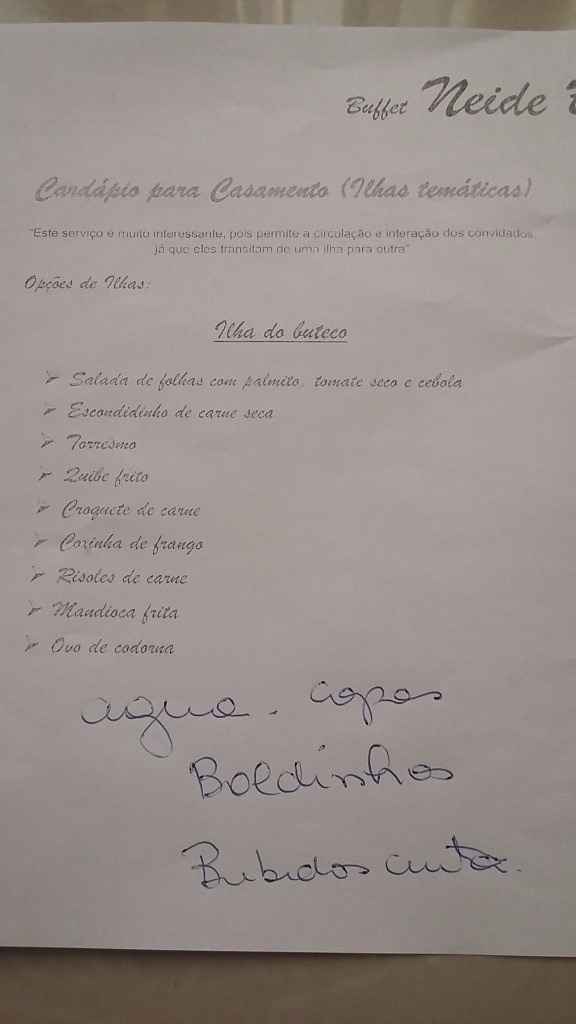 Buffet Neide
Cardápio para Casamento (Ilhas temáticas)
"Este serviço é muito interessante, pois permite a circulação e interação dos convidados,
já que eles transitam de uma ilha para outra"
Opções de Ilhas:
Ilha do buteco
➢ Salada de folhas com palmito, tomate seco e cebola
➢ Escondidinho de carne seca
➢ Torresmo
➢ Quibe frito
➢ Croquete de carne
➢ Coxinha de frango
➢ Risoles de carne
➢ Mandioca frita
➢ Ovo de codorna
agua. copos
Boldinhos